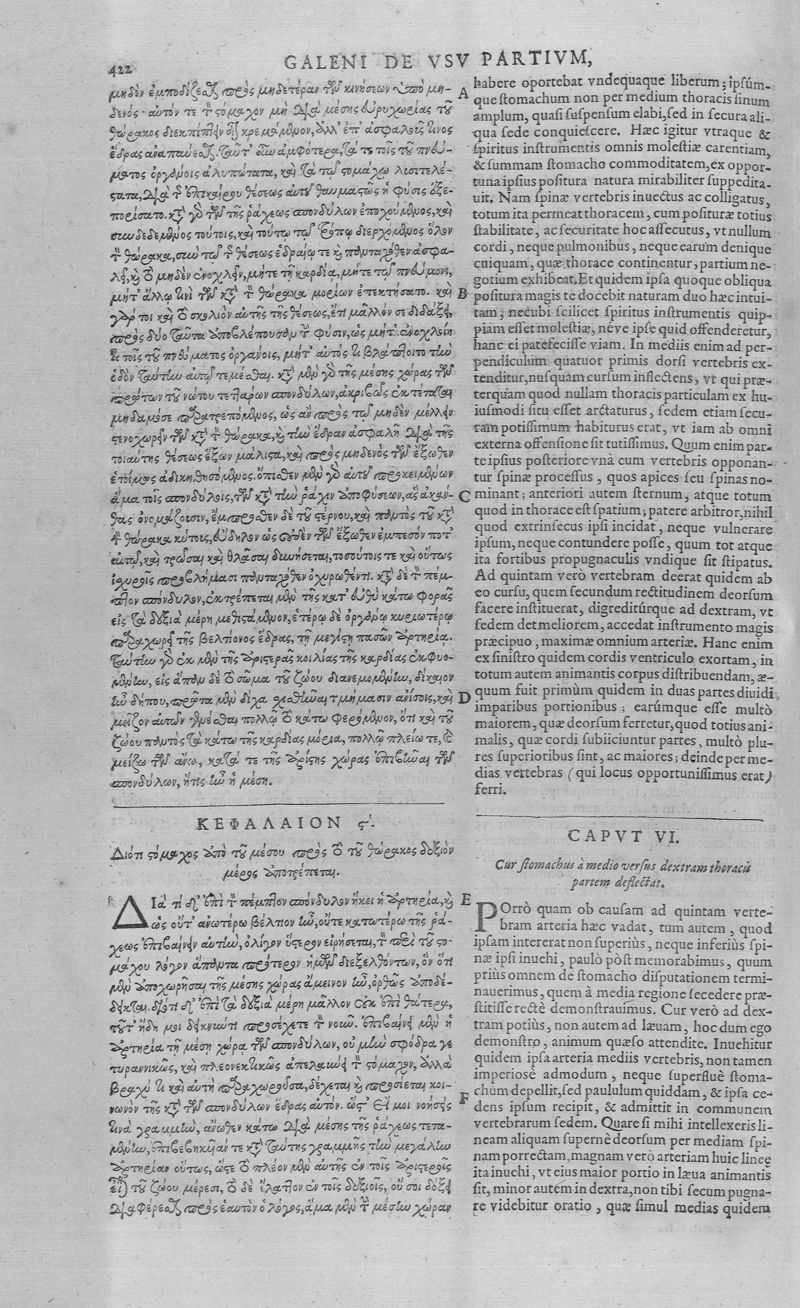 422 GALENI DE VSV PARTIVM,
μηδὲν ἐμποδίζεσθαι πρὸς μηδετέραν τῶν κινήσεων ὑπὸ μη-
δενός· αὐτόν τε τὸν στόμαχον μὴ διὰ μέσης εὐρυχωρίας τοῦ
θώρακος διεκπίπτειν κρεμάμενον, ἀλλ' ἐπ' ἀσφαλοῦς τινος
ἕδρας ἀναπαύεσθαι. ταῦτ' οὖν ἀμφότερα, τά τε τοῖς τοῦ πνεύ-
ματος ὀργάνοις ἀλυπότατα, καὶ τὰ τῷ στομάχῳ λυσιτελέ-
στατα, διὰ τῆς ἐπικαίρου θέσεως αὐτοῦ θαυμαστῶς ἡ φύσις ἐξε-
πορίσατο. κατὰ γὰρ τῶν τῆς ῥάχεως σπονδύλων ἐποχούμενος, καὶ
συνδεδεμένος τούτοις, καὶ τούτῳ τῷ τρόπῳ διερχόμενος ὅλον
τὸν θώρακα, σὺν τῷ τῆς θέσεως ἑδραίῳ τε καὶ πάνταχόθεν ἀσφα-
λεῖ, καὶ τὸ μηδὲν ἐνοχλεῖν, μήτε τῇ καρδίᾳ, μήτε τῷ πνεύμονι,
μήτ' ἄλλῳ τινὶ τῶν κατὰ τὸν θώρακα μορίων ἐπεκτήσατο. καὶ
γάρ τοι καὶ τὸ σκολιὸν αὐτῆς τῆς θέσεως, ἔτι μᾶλλόν σε διδάξει,
πρὸς δύο ταῦτα ἀποβλέπουσαν τὴν φύσιν, ὡς μήτ' ἐνοχλεῖν
τι τοῖς τοῦ πνεύματος ὀργάνοις, μήτ' αὐτός τι βλάπτοιτο τὴν
ὁδὸν ταύτην αὐτῷ τεμέσθαι. κατὰ μὲν γὰρ τῆς μέσης χώρας τῶν
πρώτων τοῦ νώτου τεττάρων σπονδύλων, ἀκριβῶς ἐκτέταται
μηδαμόσε παρατρεπόμενος, ὡς ἂν πρὸς τῷ μηδὲν μέλλειν
στενοχωρεῖν τῶν κατὰ τὸν θώρακα, καὶ τὴν ἕδραν ἀσφαλῆ διὰ τῆς
τοιαύτης θέσεως ἕξων μάλιστα, καὶ πρὸς μηδενὸς τῶν ἔξωθεν
ἑτοίμως ἀδικηθησόμενος. ὄπισθεν μὲν γὰρ αὐτοῦ προκειμένων
ἅμα τοῖς σπονδύλοις, τῶν κατὰ τὴν ῥάχιν ἀποφύσεων, ἃς ἀκάν-
θας ὀνομάζουσιν, ἔμπροσθεν δὲ τοῦ στέρνου, καὶ παντὸς τοῦ κατὰ
τὸν θώρακα κύτους, εὔδηλον ὡς οὐδὲν τῶν ἔξωθεν ἐμπεσόν ποτ'
αὐτῷ, καὶ τρῶσαι καὶ θλᾶσαι δυνήσεται, τοσούτοις τε καὶ οὕτως
ἰσχυροῖς προβλήμασι πανταχόθεν ὀχυρωθέντι. κατὰ δὲ τὸν πέμ-
πτον σπόνδυλον, ἐκτρέπεται μὲν τῆς κατ' εὐθὺ κάτω φορᾶς
εἰς τὰ δεξιὰ μέρη μεθιστάμενος, ἑτέρῳ δὲ ὀργάνῳ κυριωτέρῳ
παραχωρεῖ τῆς βελτίονος ἕδρας, τῇ μεγίστῃ πασῶν ἀρτηρίᾳ.
ταύτην γὰρ ἐκ μὲν τῆς ἀριστερᾶς κοιλίας τῆς καρδίας ἐκφυο-
μένην, εἰς ἅπαν δὲ τὸ σῶμα τοῦ ζώου διανεμομένην, δίκαιον
ἦν δήπου, πρῶτα μὲν δίχα σχισθῆναι τμήμασιν ἀνίσοις, καὶ
μεῖζον αὐτῶν γενέσθαι πολλῷ τὸ κάτω φερόμενον, ὅτι καὶ τοῦ
ζώου παντὸς τὰ κάτω τῆς καρδίας μόρια, πολλῷ πλείω τε, καὶ
μείζω τῶν ἄνω, κατά τε τῆς ἀρίστης χώρας ἐπιβῆναι τῶν
σπονδύλων, ἥτις ἦν ἡ μέση.
ΚΕΦΑΛΑΙΟΝ ϛ'.
Διότι στόμαχος ἀπὸ τοῦ μέσου πρὸς τὸ τοῦ θώρακος δεξιὸν
μέρος ἀποτρέπεται.
ΔΙΑ τί δ' ἐπὶ τὸν πέμπτον σπόνδυλον ἥκει ἡ ἀρτηρία, καὶ
ὡς οὔτ' ἀνωτέρω βέλτιον ἦν, οὔτε κατωτέρω τῆς ῥά-
χεως ἐπιβαίνειν αὐτὴν, ὀλίγον ὕστερον εἰρήσεται, τὸν περὶ τοῦ στο-
μάχου λόγον ἅπαντα πρότερον ἡμῶν διεξελθόντων, ὃν ὅτι
μὲν ὑποχωρῆσαι τῆς μέσης χώρας ἄμεινον ἦν, ὀρθῶς ἀποδέ-
δεικται. διότι δ' ἐπὶ τὰ δεξιὰ μέρη μᾶλλον οὐκ ἐπὶ θάτερα,
τοῦτ' ἤδη μοι δεικνύντι προσέχετε τὸν νοῦν. ἐπιβαίνει μὲν ἡ
ἀρτηρία τῇ μέσῃ χώρᾳ τῶν σπονδύλων, οὐ μὴν σφόδρα γε
τυραννικῶς, καὶ πλεονεκτικῶς ἀπελαύνει τὸν στόμαχον, ἀλλὰ
βραχύ τι καὶ αὐτὴ παραχωροῦσα, δέχεται καὶ προσίεται κοι-
νωνὸν τῆς κατὰ τῶν σπονδύλων ἕδρας αὐτόν. ὥστ' εἴ μοι νοήσεις
τινὰ γραμμὴν, ἄνωθεν κάτω διὰ μέσης τῆς ῥάχεως τετα-
μένην, ἐπιβεβηκυῖάν τε κατὰ ταύτης γραμμῆς τὴν μεγάλην
ἀρτηρίαν οὕτως, ὥστε τὸ πλέον μὲν αὐτῆς ἐν τοῖς ἀριστεροῖς
εἶναι τοῦ ζώου μέρεσι, τὸ δὲ ἔλαττον ἐν τοῖς δεξιοῖς, οὔ σοι δόξει
διαφέρεσθαι πρὸς ἑαυτὸν ὁ λόγος, ἅμα μὲν τὴν μέσην χώραν
A
B
C
D
E
F
habere oportebat vndequaque liberum; ipsúm-
que stomachum non per medium thoracis sinum
amplum, quasi suspensum elabi, sed in secura ali-
qua sede conquiescere. Hæc igitur vtraque &
spiritus instrumentis omnis molestiæ carentiam,
& summam stomacho commoditatem, ex oppor-
tuna ipsius positura natura mirabiliter suppedita-
uit. Nam spinæ vertebris inuectus ac colligatus,
totum ita permeat thoracem, cum posituræ totius
stabilitate, ac securitate hoc assecutus, vt nullum
cordi, neque pulmonibus, neque earum denique
cuiquam, quæ thorace continentur, partium ne-
gotium exhibeat. Et quidem ipsa quoque obliqua
positura magis te docebit naturam duo hæc intui-
tam; necubi scilicet spiritus instrumentis quip-
piam esset molestiæ, néve ipse quid offenderetur,
hanc ei patefecisse viam. In mediis enim ad per-
pendiculum quatuor primis dorsi vertebris ex-
tenditur, nusquam cursum inflectens, vt qui præ-
terquam quod nullam thoracis particulam ex hu-
iusmodi situ esset arctaturus, sedem etiam secu-
ram potissimum habiturus erat, vt iam ab omni
externa offensione sit tutissimus. Quum enim par-
te ipsius posteriore vnà cum vertebris opponan-
tur spinæ processus, quos apices seu spinas no-
minant; anteriori autem sternum, atque totum
quod in thorace est spatium; patere arbitror, nihil
quod extrinsecus ipsi incidat, neque vulnerare
ipsum, neque contundere posse, quum tot atque
ita fortibus propugnaculis vndique sit stipatus.
Ad quintam verò vertebram deerat quidem ab
eo cursu, quem secundum rectitudinem deorsum
facere instituerat, digreditúrque ad dextram, vt
sedem det meliorem, accedat instrumento magis
præcipuo, maximæ omnium arteriæ. Hanc enim
ex sinistro quidem cordis ventriculo exortam, in
totum autem animantis corpus distribuendam, æ-
quum fuit primùm quidem in duas partes diuidi
imparibus portionibus; earúmque esse multò
maiorem, quæ deorsum ferretur, quod totius ani-
malis, quæ cordi subiiciuntur partes, multò plu-
res superioribus sint, ac maiores; deinde per me-
dias vertebras (qui locus opportunissimus erat)
ferri.
CAPVT VI.
Cur stomachus à medio versus dextram thoracis
partem deflectat.
POrrò quam ob causam ad quintam verte-
bram arteria hæc vadat, tum autem, quod
ipsam intererat non superiùs, neque inferiùs spi-
næ ipsi inuehi, paulò pòst memorabimus, quum
priùs omnem de stomacho disputationem termi-
nauerimus, quem à media regione secedere præ-
stitisse rectè demonstrauimus. Cur verò ad dex-
tram potiùs, non autem ad læuam, hoc dum ego
demonstro, animum quæso attendite. Inuehitur
quidem ipsa arteria mediis vertebris, non tamen
imperiosè admodum, neque superfluè stoma-
chum depellit, sed paululum quiddam, & ipsa ce-
dens ipsum recipit, & admittit in communem
vertebrarum sedem. Quare si mihi intellexeris li-
neam aliquam supernè deorsum per mediam spi-
nam porrectam, magnam verò arteriam huic lineæ
ita inuehi, vt eius maior portio in læua animantis
sit, minor autem in dextra, non tibi secum pugna-
re videbitur oratio, quæ simul medias quidem